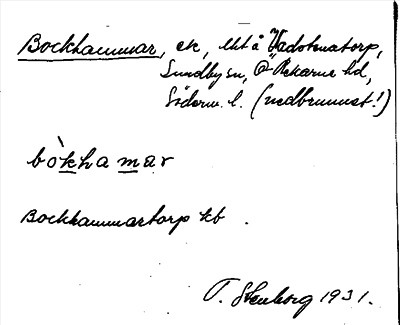 Bockhammar, ek, ält å Vadstenatorp,
Sundby sn, Ö Rekarne hd,
Söderm. l. (nedbrunnet!)
bòkhamar
Bockhammartorp kb.
T. Stenborg 1931.